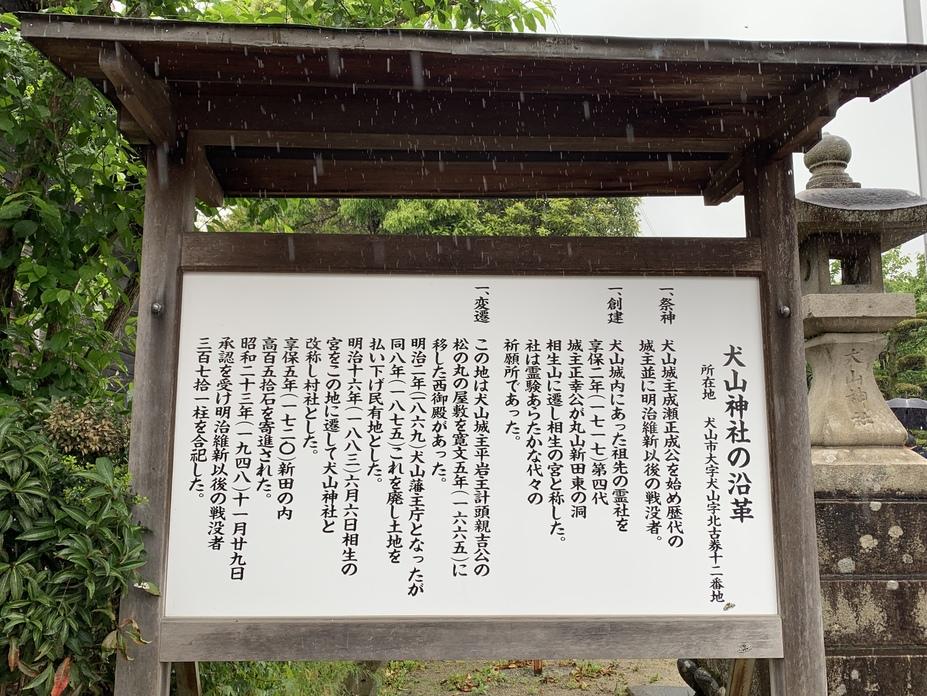 犬山神社の沿革
所在地 犬山市大字犬山字北古券十二番地
一、祭神
犬山城主成瀬正成公を始め歴代の
城主並に明治維新以後の戦没者。
一、創建
犬山城内にあった祖先の霊社を
享保二年(一七一七)第四代
城主正幸公が丸山新田東の洞
相生山に遷し相生の宮と称した。
社は霊験あらたかな代々の
祈願所であった。
一、変遷
この地は犬山城主平岩主計頭親吉公の
松の丸の屋敷を寛文五年(一六六五)に
移した西御殿があった。
明治二年(一八六九)犬山藩主庁となったが
同八年(一八七五)これを廃し土地を
払い下げ民有地とした。
明治十六年(一八八三)六月六日相生の
宮をこの地に遷して犬山神社と
改称し村社とした。
享保五年(一七二〇)新田の内
高百五拾石を寄進された。
昭和二十三年(一九四八)十一月廿九日
承認を受け明治維新以後の戦没者
三百七拾一柱を合祀した。
犬山神社